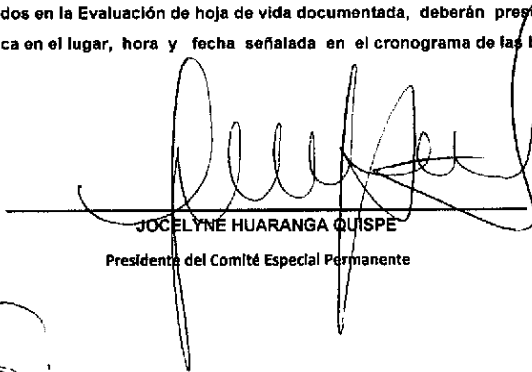 dos en la Evaluación de hoja de vida documentada, deberán
ca en el lugar, hora y fecha señalada en el cronograma de las
JOCELYNE HUARANGA QUISPE
Presidente del Comité Especial Permanente